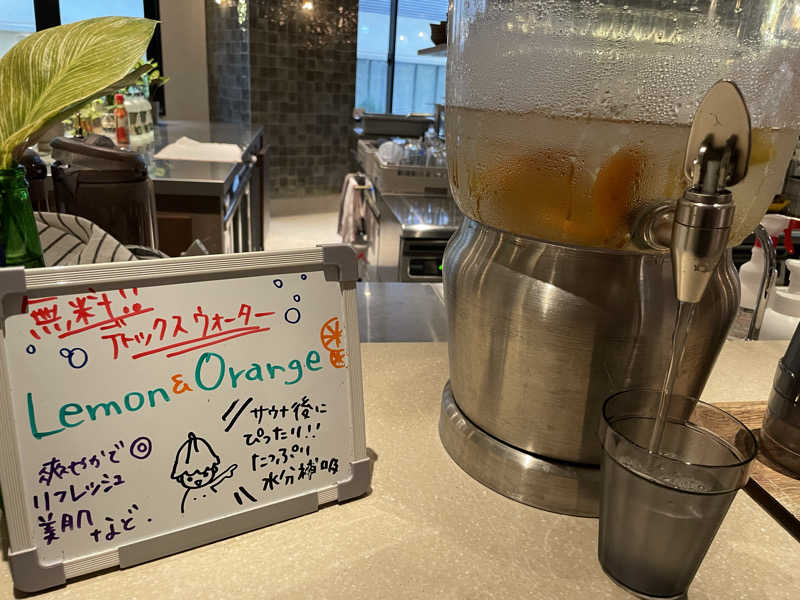 無料!!
デトックスウォーター
Lemon & Orange
爽やかで◎
リフレッシュ
美肌 など.
サウナ後に
ぴったり!!
たっぷり
水分補給